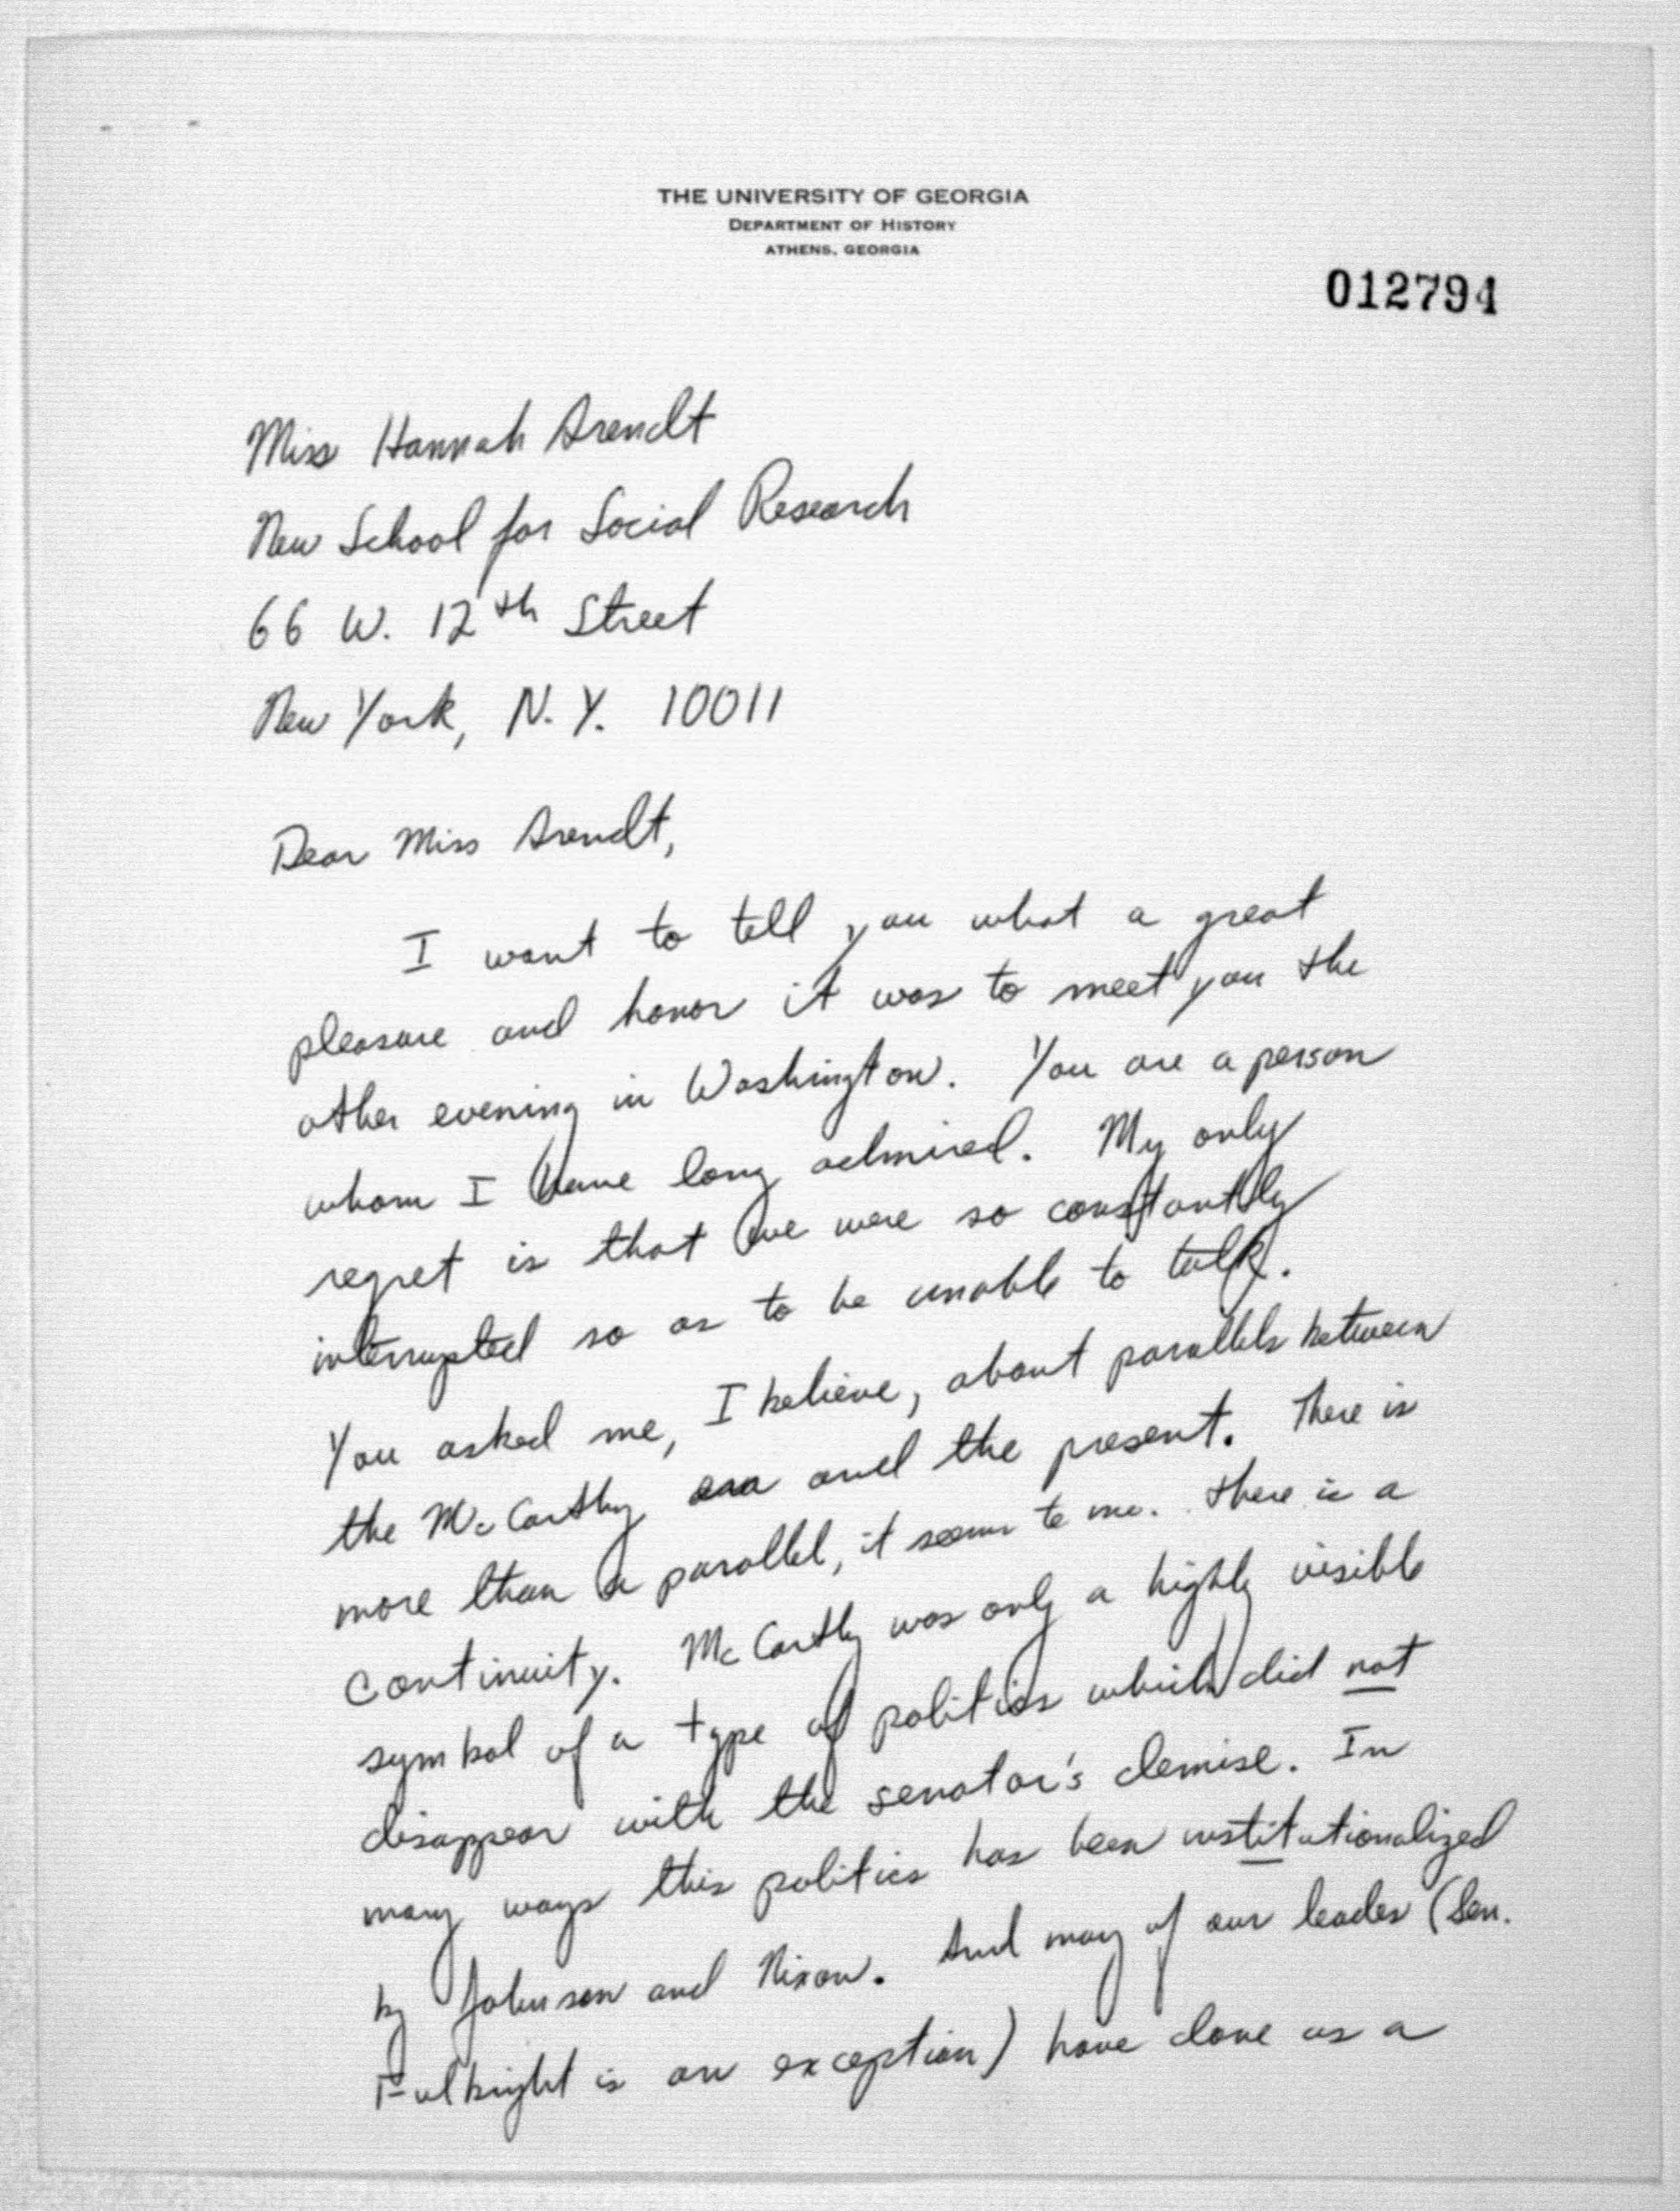 THE UNIVERSITY OF GEORGIA
DEPARTMENT OF HISTORY
ATHENS, GEORGIA
012794
Miss Hannah Arendt
New School for Social Research
66 W. 12th Street
New York, N.Y. 10011
Dear Miss Arendt,
I want to tell you what a great
pleasure and honor it was to meet you the
other evening in Washington. You are a person
whom I have long admired. My only
regret is that we were so constantly
interrupted so as to be unable to talk.
You asked me, I believe, about parallels between
the McCarthy era and the present. There is
more than a parallel, it seems to me. There is a
continuity. McCarthy was only a highly visible
symbol of a type of politics which did not
disappear with the senator's demise. In
many ways this politics has been institutionalized
by Johnson and Nixon. And many of our leaders (Sen.
Fulbright is an exception) have done us a